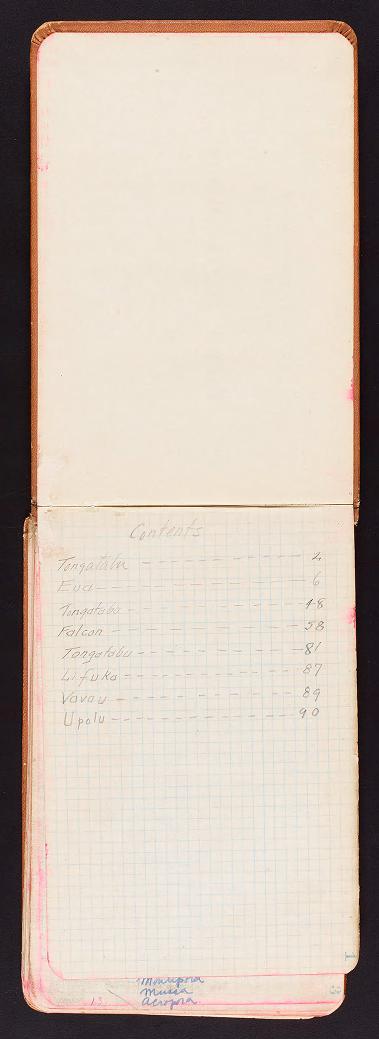 Contents
Tongatabu - - - - - - - - - - 2
Eua - - - - - - - - - - 6
Tongatabu - - - - - - - - - - 48
Falcon - - - - - - - - - - 58
Tongatabu - - - - - - - - - - 81
Lifuka - - - - - - - - - - 87
Vavau - - - - - - - - - - 89
Upolu - - - - - - - - - - 90
1
Montipora
Mussa
Acropora
13
3